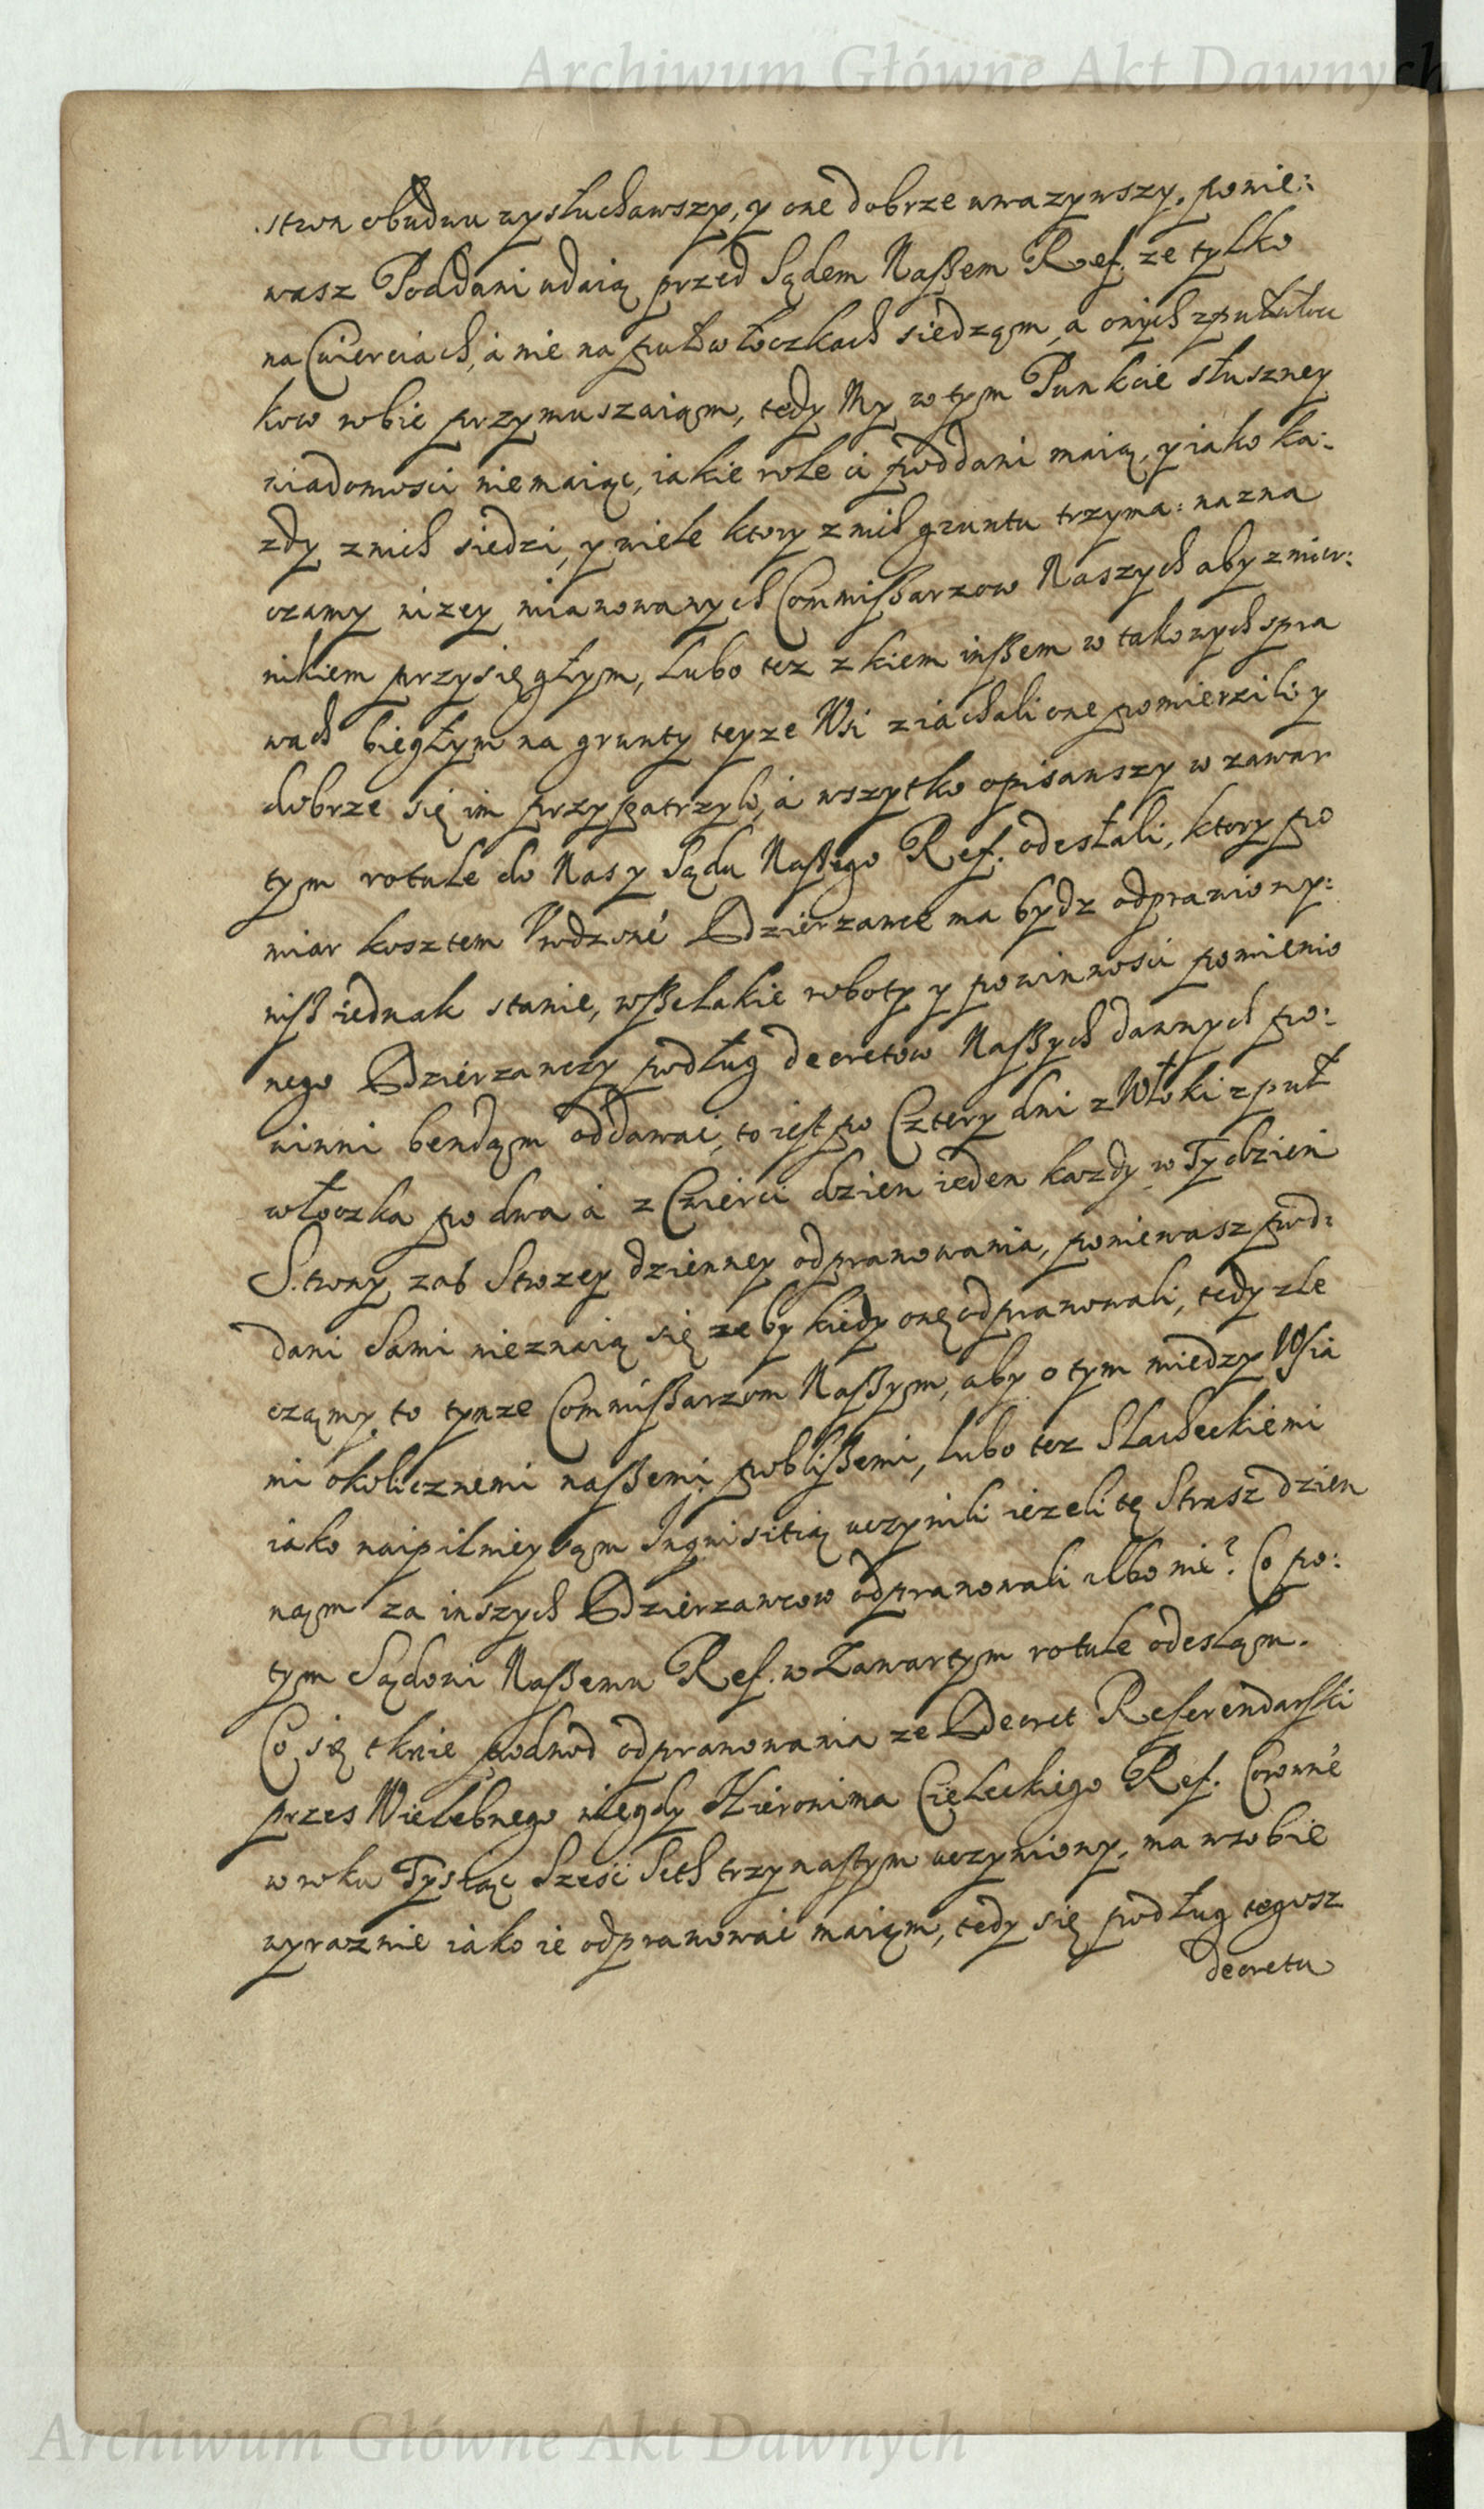 Archiwum Główne Akt Dawnych
stron obudwu wysłuchawszy, y one dobrze uwazywszy, ponie:
wasz Poddani udaią przed Sądem Naßem Ref. ze tylko
na Cwierciach, a nie na pułwłoczkach siedzą, a onych z pułwłocz
kow robic przymuszaią, tedy My w tym Punkcie słuszney
wiadomosci niemaiąc, iakie role ci poddani maią, y iako ka:
zdy z nich siedzi, y wiele ktory z nich gruntu trzyma: nazna
czamy nizey mianowanych Commißarzow Naszych aby z mier:
nikiem przysięgłym, lubo tez z kiem inßem w takowych spra
wach biegłym na grunty teyze Wsi ziachali one pomierzili y
dobrze się im przypatrzyli, a wszytko opisawszy w zawar
tym rotule do Nas y Sądu Naßego Ref. odesłali, ktory po
miar kosztem Urodzone Dzierzawce ma bydz odprawiony:
niß iednak stanie, wßelakie roboty y powinnosci pomienio
nego Dzierzawczy podług decretow Naßych dawnych po:
winni bendą oddawac, to iest po Cztery dni z Włoki z puł
włoczka po dwa a z Cwierci dzien ieden kazdy w Tydzien
Strony zas Strozey dzienney odprawowania, poniewasz pod:
dani sami nieznaią się zeby kiedy onę odprawowali, tedy zle
czamy to tymze Commißarzom Naßym, aby o tym miedzy Wsia
mi okolicznemi naßemi poblißemi, lubo tez Slacheckiemi
iako naipilnieyßą Inquisitią uczynili iezeli tę Strasz dzien
ną za inszych Dzierzawcow odprawowali albo nie? Co po:
tym Sądowi Naßemu Ref. w Zawartym rotule odesłą.
Co się tknie podwod odprawowania ze Decret Referendarski
przes Wielebnego niegdy Hieronima Cieleckiego Ref. Corone
w roku Tysiąc Szesc Seth trzynastym uczyniony, ma w sobie
wyraznie iako ie odprawowac maią, tedy się podług tegosz
decretu
Archiwum Główne Akt Dawnych